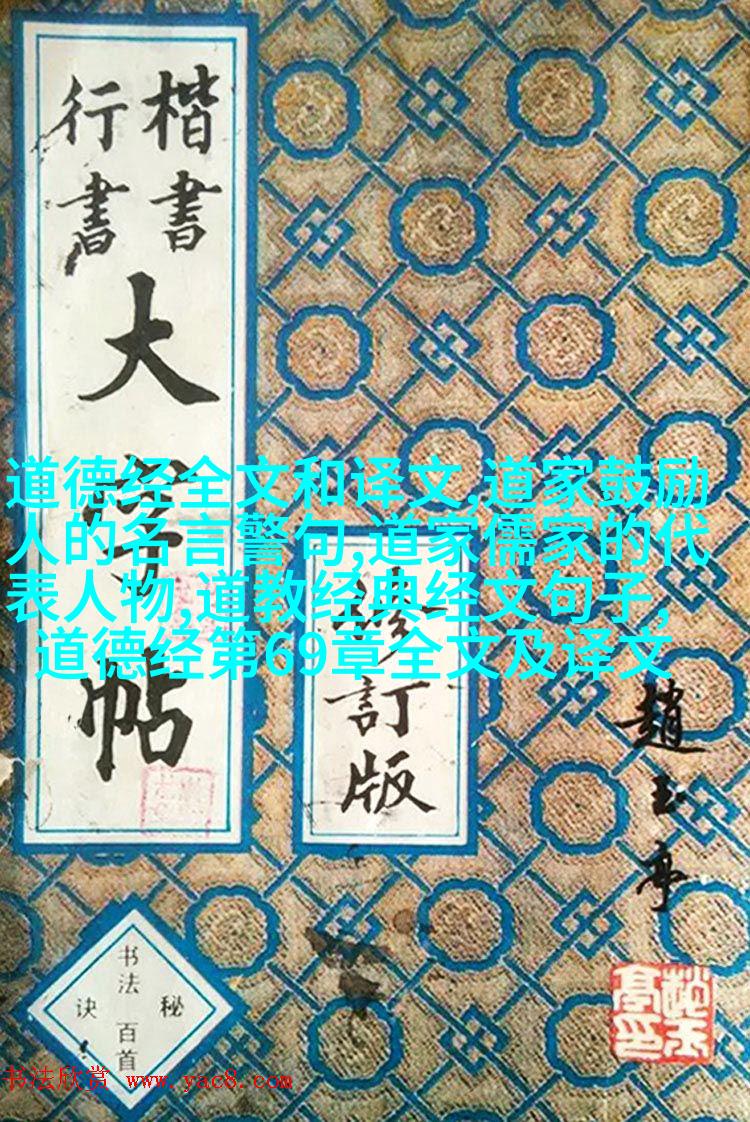 楷書
行書
大字帖
訂版
趙玉亭
书法
秘诀
百首
道德经全文和译文,道家鼓励
人的名言警句,道家儒家的代
表人物,道教经典经文句子,
道德经第69章全文及译文
书法欣赏 www.yac8.com